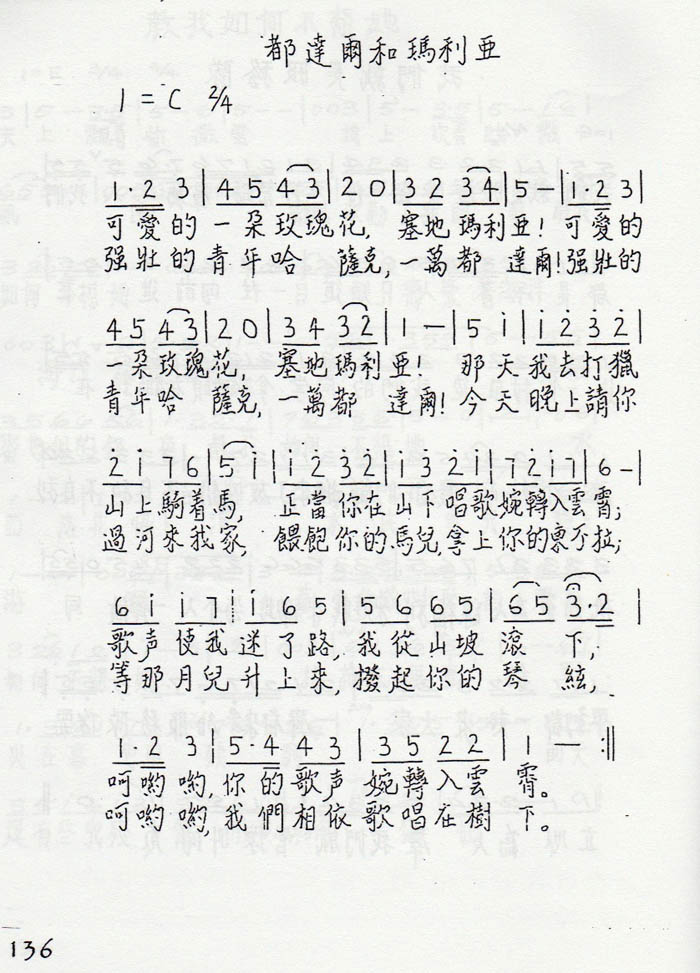 都達爾和瑪利亞
1=C 2/4
1·2 3|4 5 4 3|2 0|3 2 3 4|5 -|1·2 3|
可愛的一朵玫瑰花, 塞地瑪利亞! 可愛的
强壯的青年哈 薩克, 一萬都 達爾! 强壯的
4 5 4 3|2 0|3 4 3 2|1 -|5 i|i 2 3 2|
一朵玫瑰花, 塞地瑪利亞! 那天我去打獵
青年哈 薩克, 一萬都 達爾! 今天晚上請你
2 i 7 6|5 i|i 2 3 2|i 3 2 i|7 2 i 7|6 -|
山上騎着馬, 正當你在山下唱歌婉轉入雲霄;
過河來我家, 餵飽你的馬兒, 拿上你的東不拉;
6 i i 7|i i 6 5|5 6 6 5|6 5 3·2|
歌声使我迷了路, 我從山坡滾 下,
等那月兒升上來, 撥起你的琴 絃,
1·2 3|5·4 4 3|3 5 2 2|1 - :||
呵喲喲, 你的歌声 婉轉入雲 霄。
呵喲喲, 我們相依歌唱在樹 下。
136